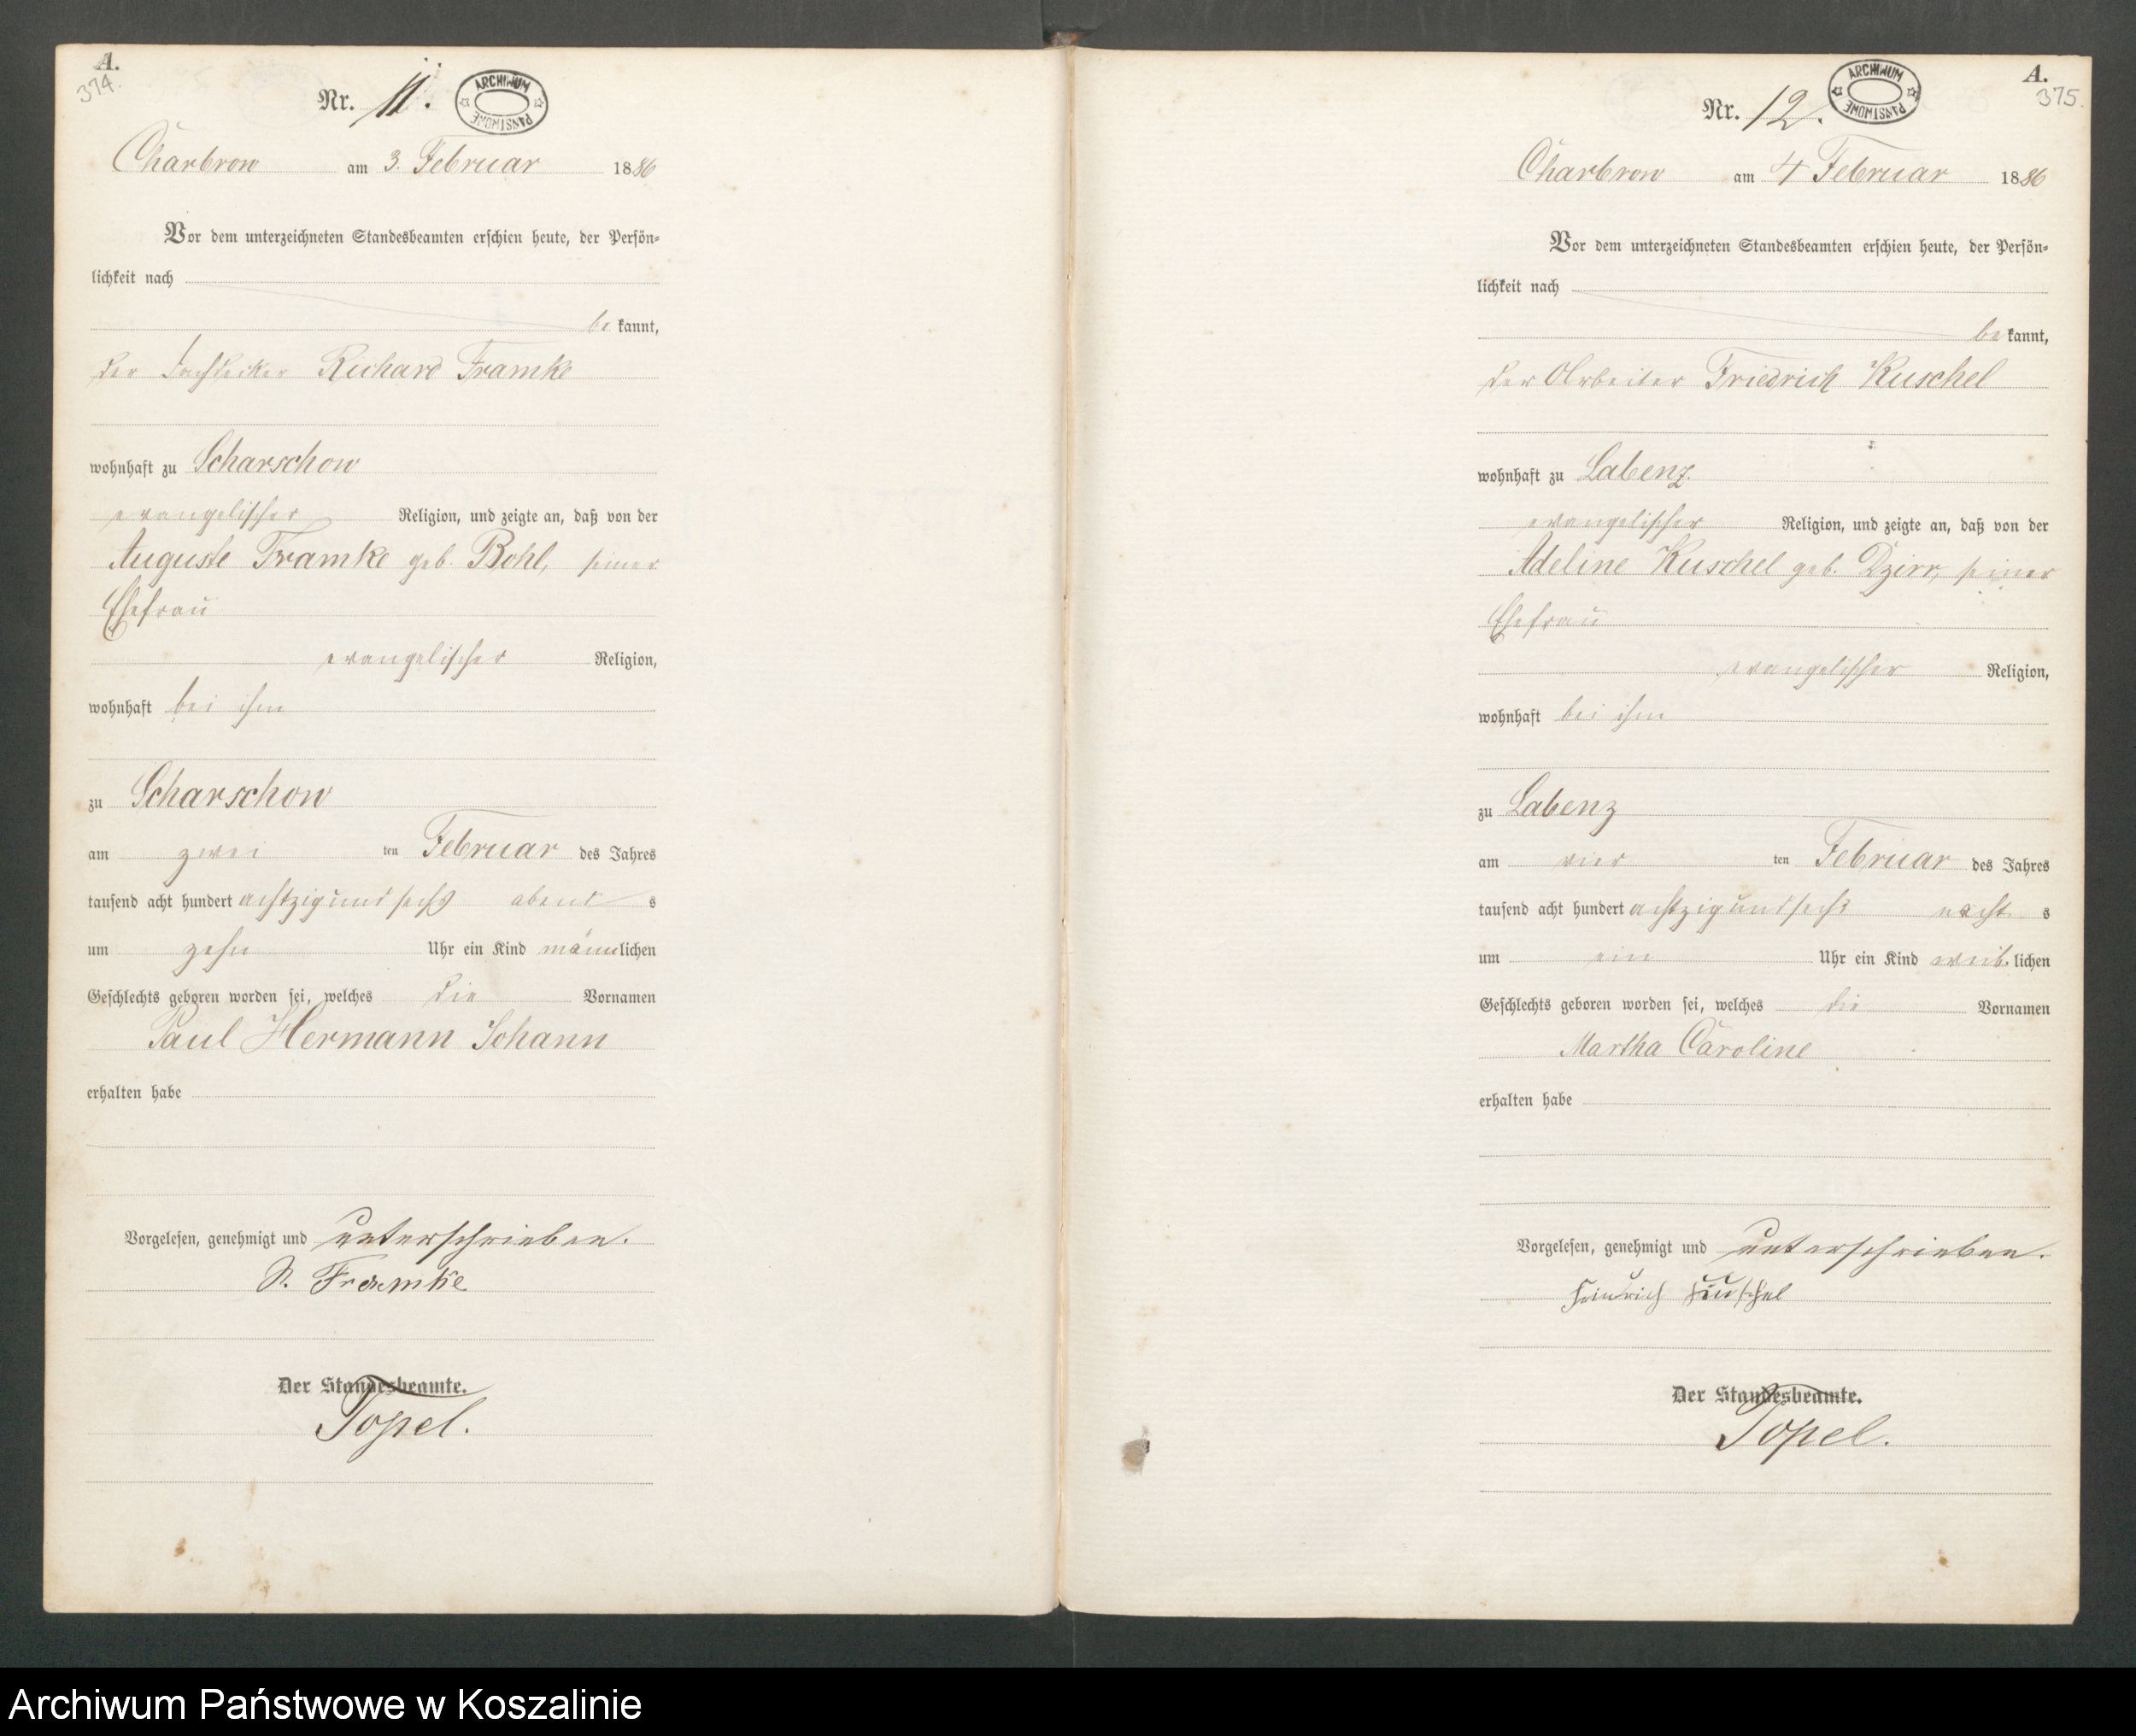 A.
374.
Nr. 11.
ARCHIWUM PAŃSTWOWE
Charbrow am 3. Februar 1886
Vor dem unterzeichneten Standesbeamten erschien heute, der Persön-
lichkeit nach
be kannt,
der Dachdecker Richard Framke
wohnhaft zu Scharschow
evangelischer Religion, und zeigte an, daß von der
Auguste Framke geb. Bohl, seiner
Ehefrau
evangelischer Religion,
wohnhaft bei ihm
zu Scharschow
am zwei ten Februar des Jahres
tausend acht hundert achtzig und sechs abend s
um zehn Uhr ein Kind männlichen
Geschlechts geboren worden sei, welches die Vornamen
Paul Hermann Johann
erhalten habe
Vorgelesen, genehmigt und unterschrieben.
R. Framke
Der Standesbeamte.
Topel.
A.
375.
Nr. 12.
ARCHIWUM PAŃSTWOWE
Charbrow am 4 Februar 1886
Vor dem unterzeichneten Standesbeamten erschien heute, der Persön-
lichkeit nach
be kannt,
der Arbeiter Friedrich Kuschel
wohnhaft zu Labenz
evangelischer Religion, und zeigte an, daß von der
Adeline Kuschel geb. Dzirr, seiner
Ehefrau
evangelischer Religion,
wohnhaft bei ihm
zu Labenz
am vier ten Februar des Jahres
tausend acht hundert achtzig und sechs nacht s
um ein Uhr ein Kind weib lichen
Geschlechts geboren worden sei, welches die Vornamen
Martha Caroline
erhalten habe
Vorgelesen, genehmigt und unterschrieben.
Kuschel
Der Standesbeamte.
Topel.
Archiwum Państwowe w Koszalinie